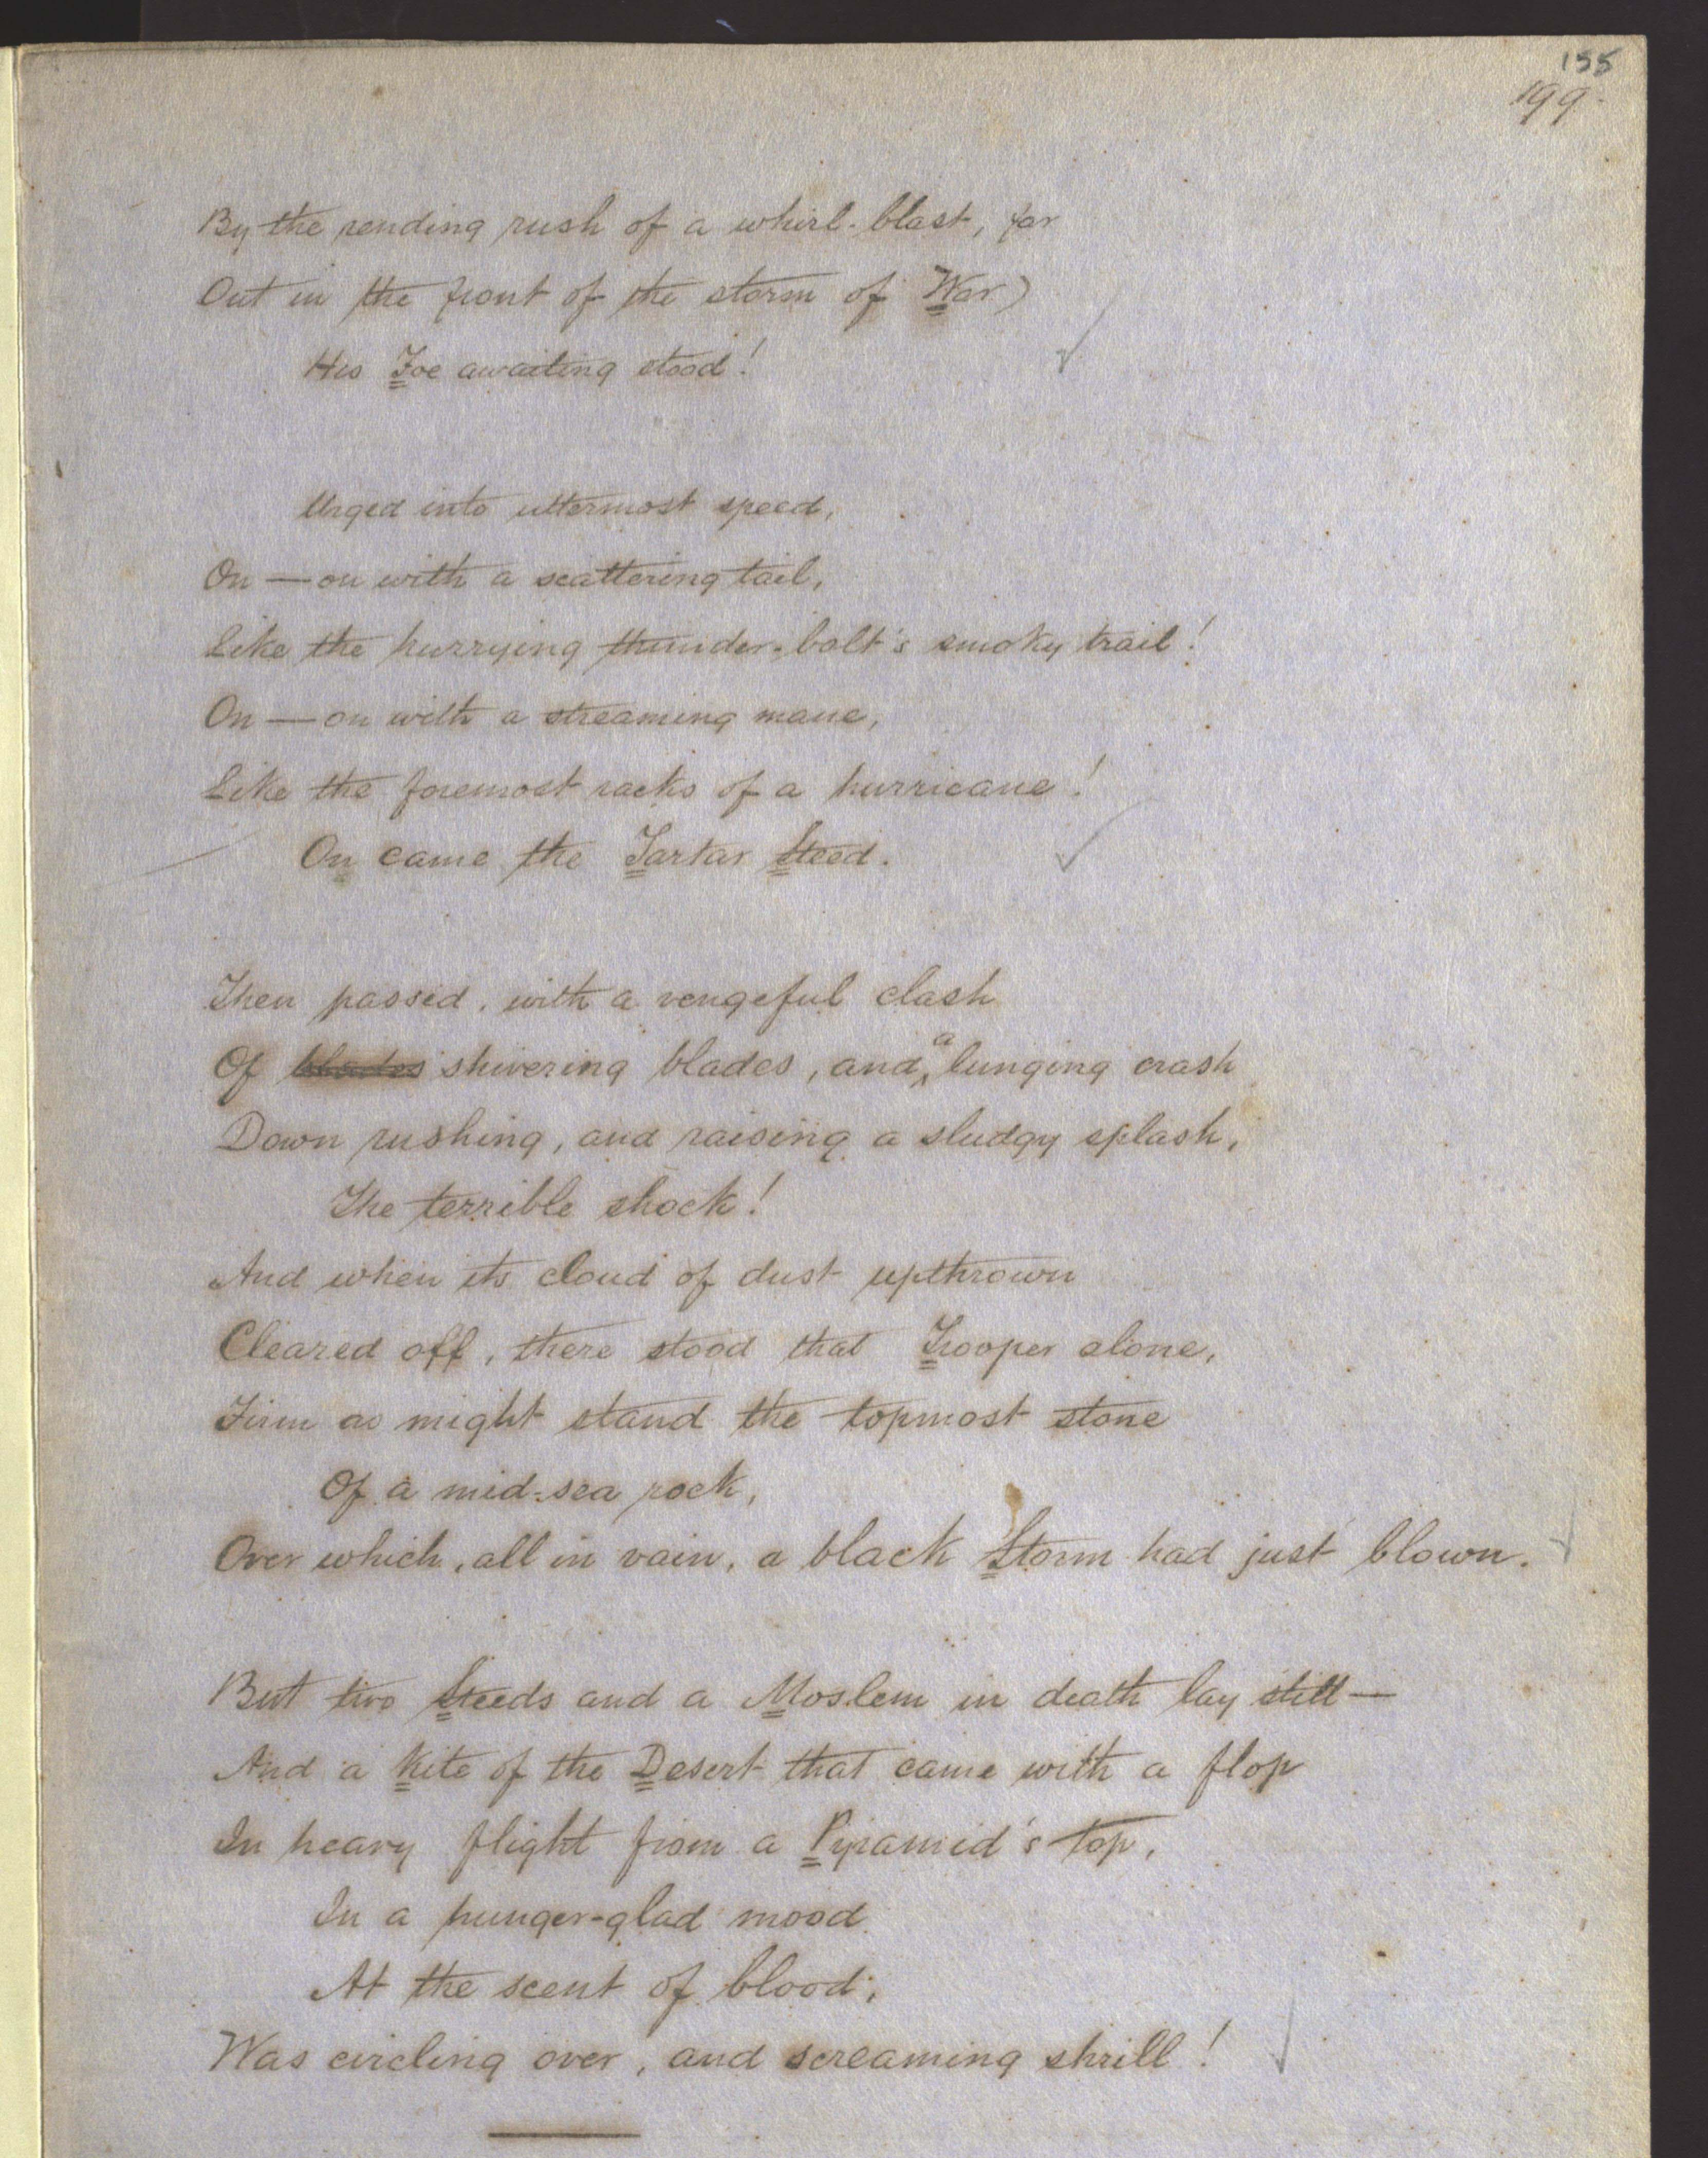 155
199.
By the rending rush of a whirl-blast, far
Out in the front of the storm of War)
His Foe awaiting stood!
Urged into uttermost speed,
On — on with a scattering tail,
Like the hurrying thunder-bolt's smoky trail!
On — on with a streaming mane,
Like the foremost racks of a hurricane!
On came the Tartar Steed.
Then passed, with a vengeful clash
Of blades shivering blades, and a lunging crash
Down rushing, and raising a sludgy splash,
The terrible shock!
And when its cloud of dust upthrown
Cleared off, there stood that Trooper alone,
Firm as might stand the topmost stone
Of a mid-sea rock,
Over which, all in vain, a black Storm had just blown.
But two Steeds and a Moslem in death lay still —
And a Kite of the Desert that came with a flop
In heavy flight from a Pyramid's top,
In a hunger-glad mood
At the scent of blood,
Was circling over, and screaming shrill!